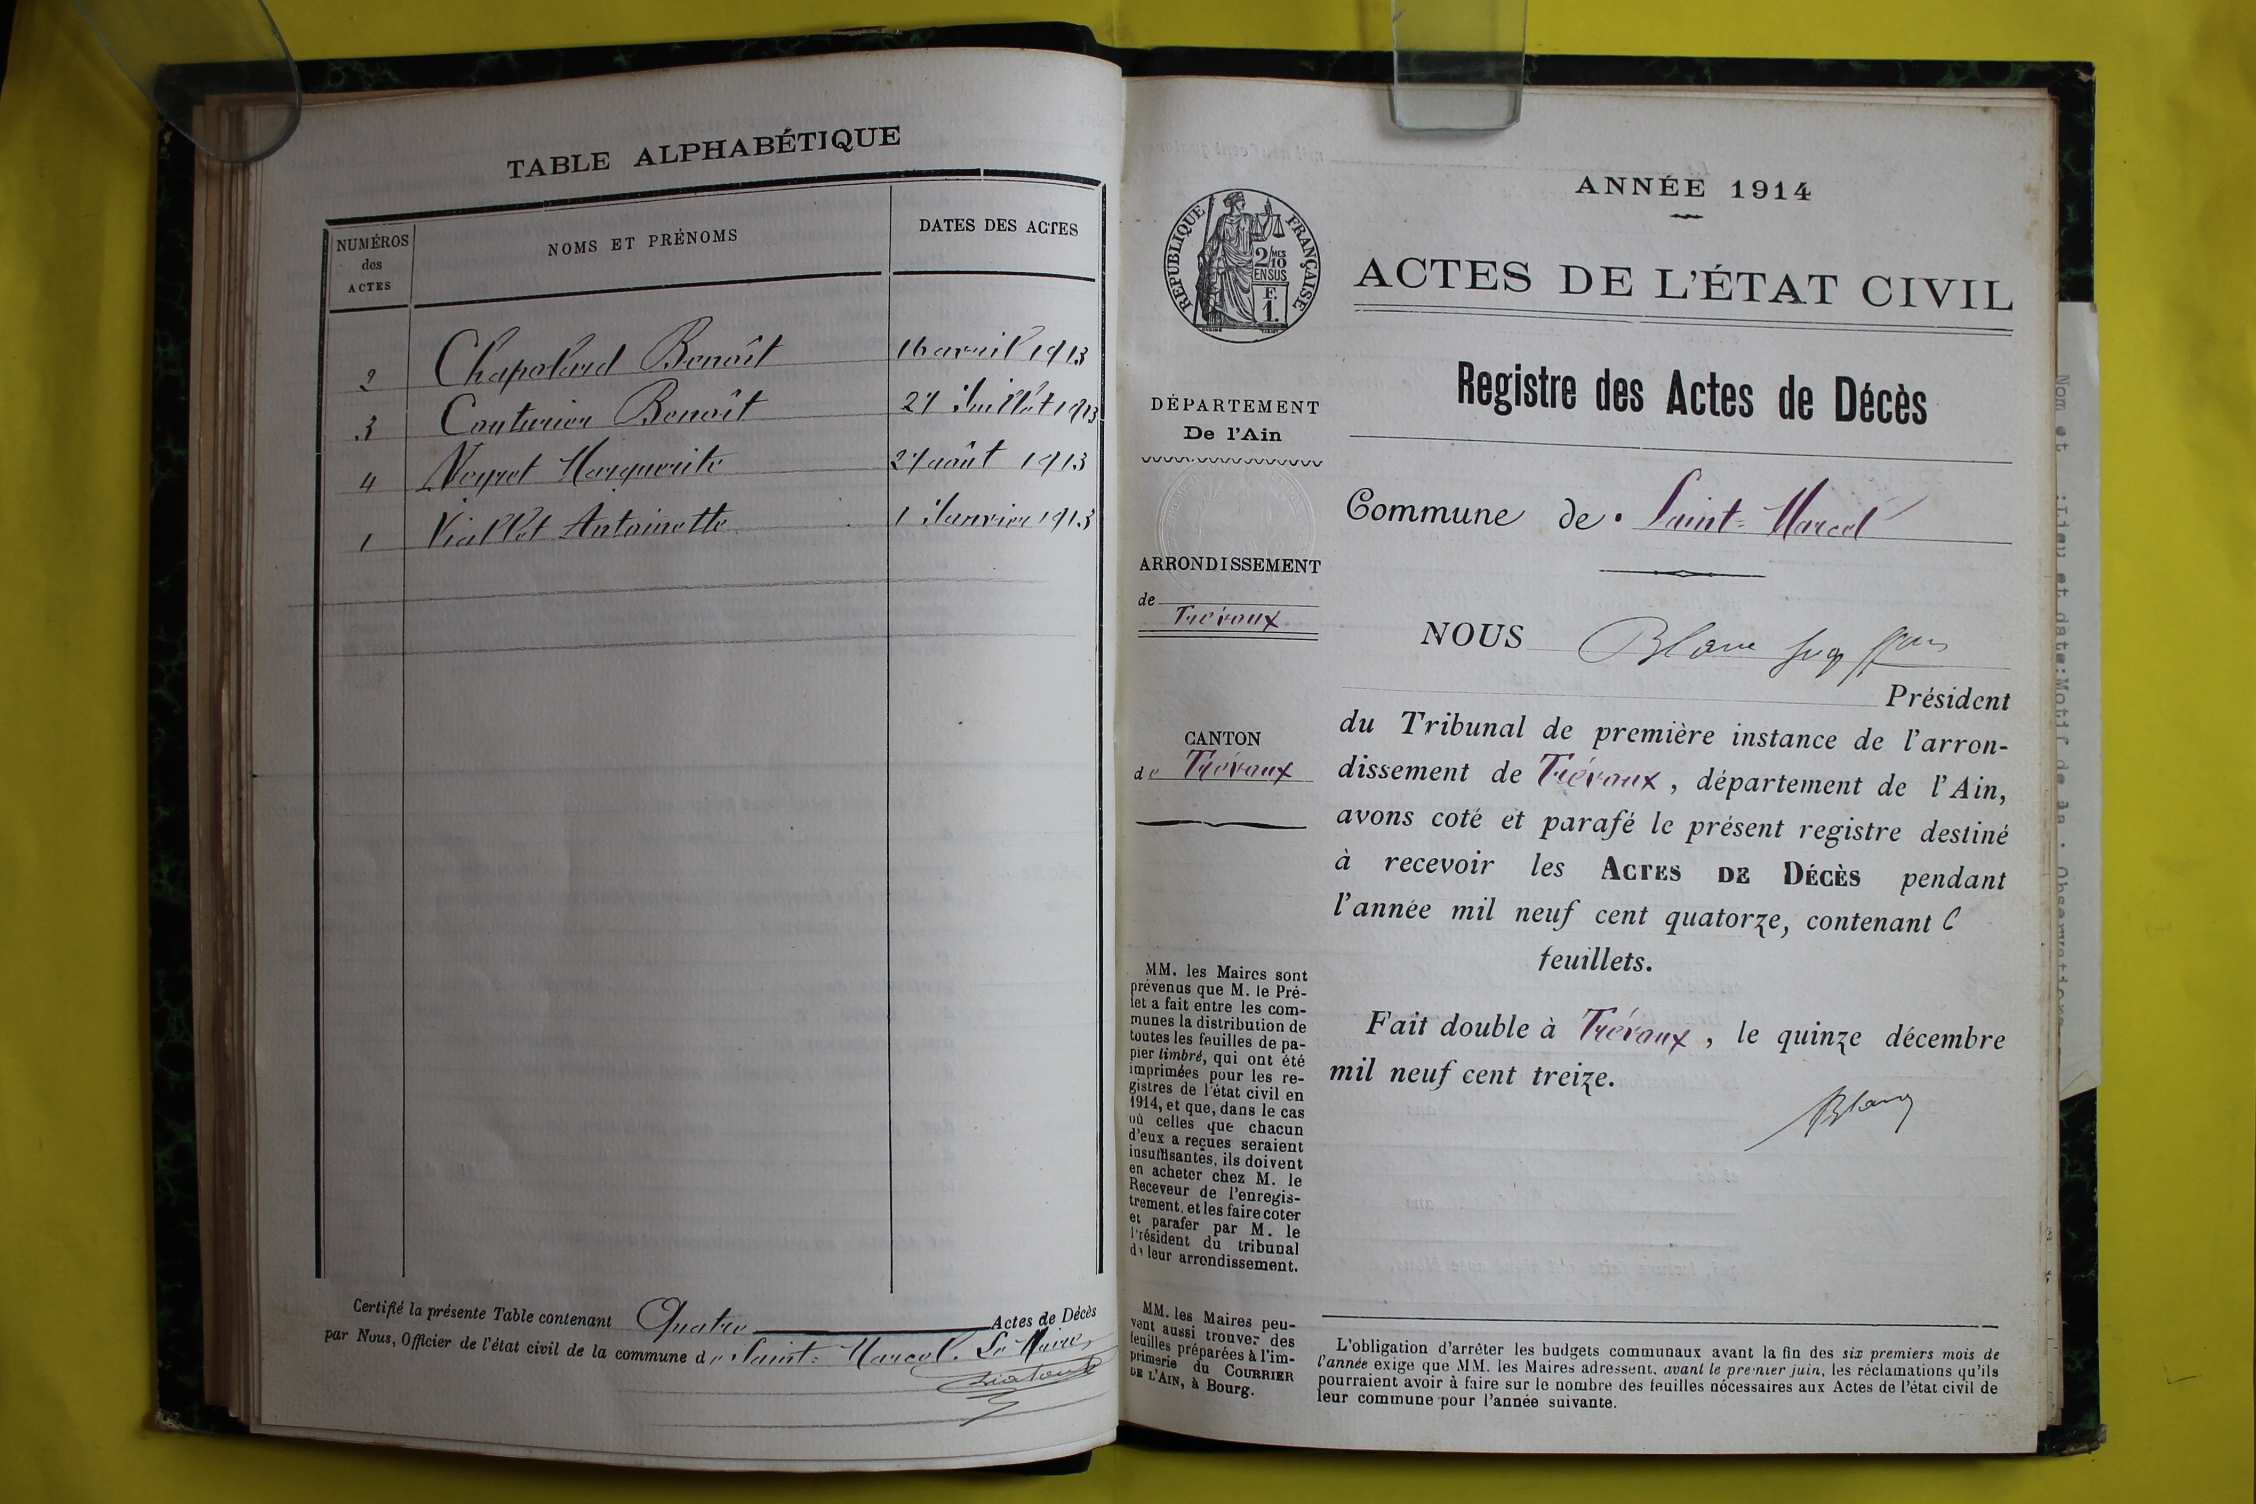 TABLE ALPHABÉTIQUE
NUMÉROS
des
ACTES
NOMS ET PRÉNOMS
DATES DES ACTES
2 Chapolard Benoît 16 avril 1913
3 Couturier Benoît 27 Juillet 1913
4 Neyret Marguerite 27 août 1913
1 Viallet Antoinette 1 Janvier 1913
Certifié la présente Table contenant Quatre Actes de Décès
par Nous, Officier de l'état civil de la commune de Saint-Marcel. Le Maire,
ANNÉE 1914
RÉPUBLIQUE FRANÇAISE
2/MES
10
EN SUS
F.
1.
ACTES DE L'ÉTAT CIVIL
Registre des Actes de Décès
DÉPARTEMENT
De l'Ain
Commune de Saint-Marcel
ARRONDISSEMENT
de
Trévoux
NOUS Blanc
Président
CANTON
de Trévoux
du Tribunal de première instance de l'arron-
dissement de Trévoux, département de l'Ain,
avons coté et parafé le présent registre destiné
à recevoir les ACTES DE DÉCÈS pendant
l'année mil neuf cent quatorze, contenant
feuillets.
Fait double à Trévoux, le quinze décembre
mil neuf cent treize.
Blanc
MM. les Maires sont
prévenus que M. le Pré-
fet a fait entre les com-
munes la distribution de
toutes les feuilles de pa-
pier timbré, qui ont été
imprimées pour les re-
gistres de l'état civil en
1914, et que, dans le cas
où celles que chacun
d'eux a reçues seraient
insuffisantes, ils doivent
en acheter chez M. le
Receveur de l'enregis-
trement, et les faire coter
et parafer par M. le
Président du tribunal
de leur arrondissement.
MM. les Maires peu-
vent aussi trouver des
feuilles préparées à l'im-
primerie du COURRIER
DE L'AIN, à Bourg.
L'obligation d'arrêter les budgets communaux avant la fin des six premiers mois de
l'année exige que MM. les Maires adressent, avant le premier juin, les réclamations qu'ils
pourraient avoir à faire sur le nombre des feuilles nécessaires aux Actes de l'état civil de
leur commune pour l'année suivante.